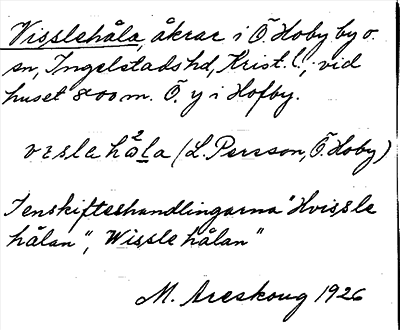 Visslehåla, åkrar i Ö. Hoby by o.
sn, Ingelstads hd, Krist. l., vid
huset 800 m. Ö. y i Hofby.
vɪslahå²la (L. Persson, Ö. Hoby)
I enskifteshandlingarna "Hvissle
hålan", "Wissle hålan"
M. Areskoug 1926